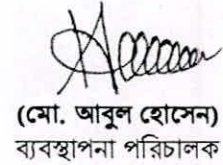 (মো. আবুল হোসেন)
ব্যবস্থাপনা পরিচালক